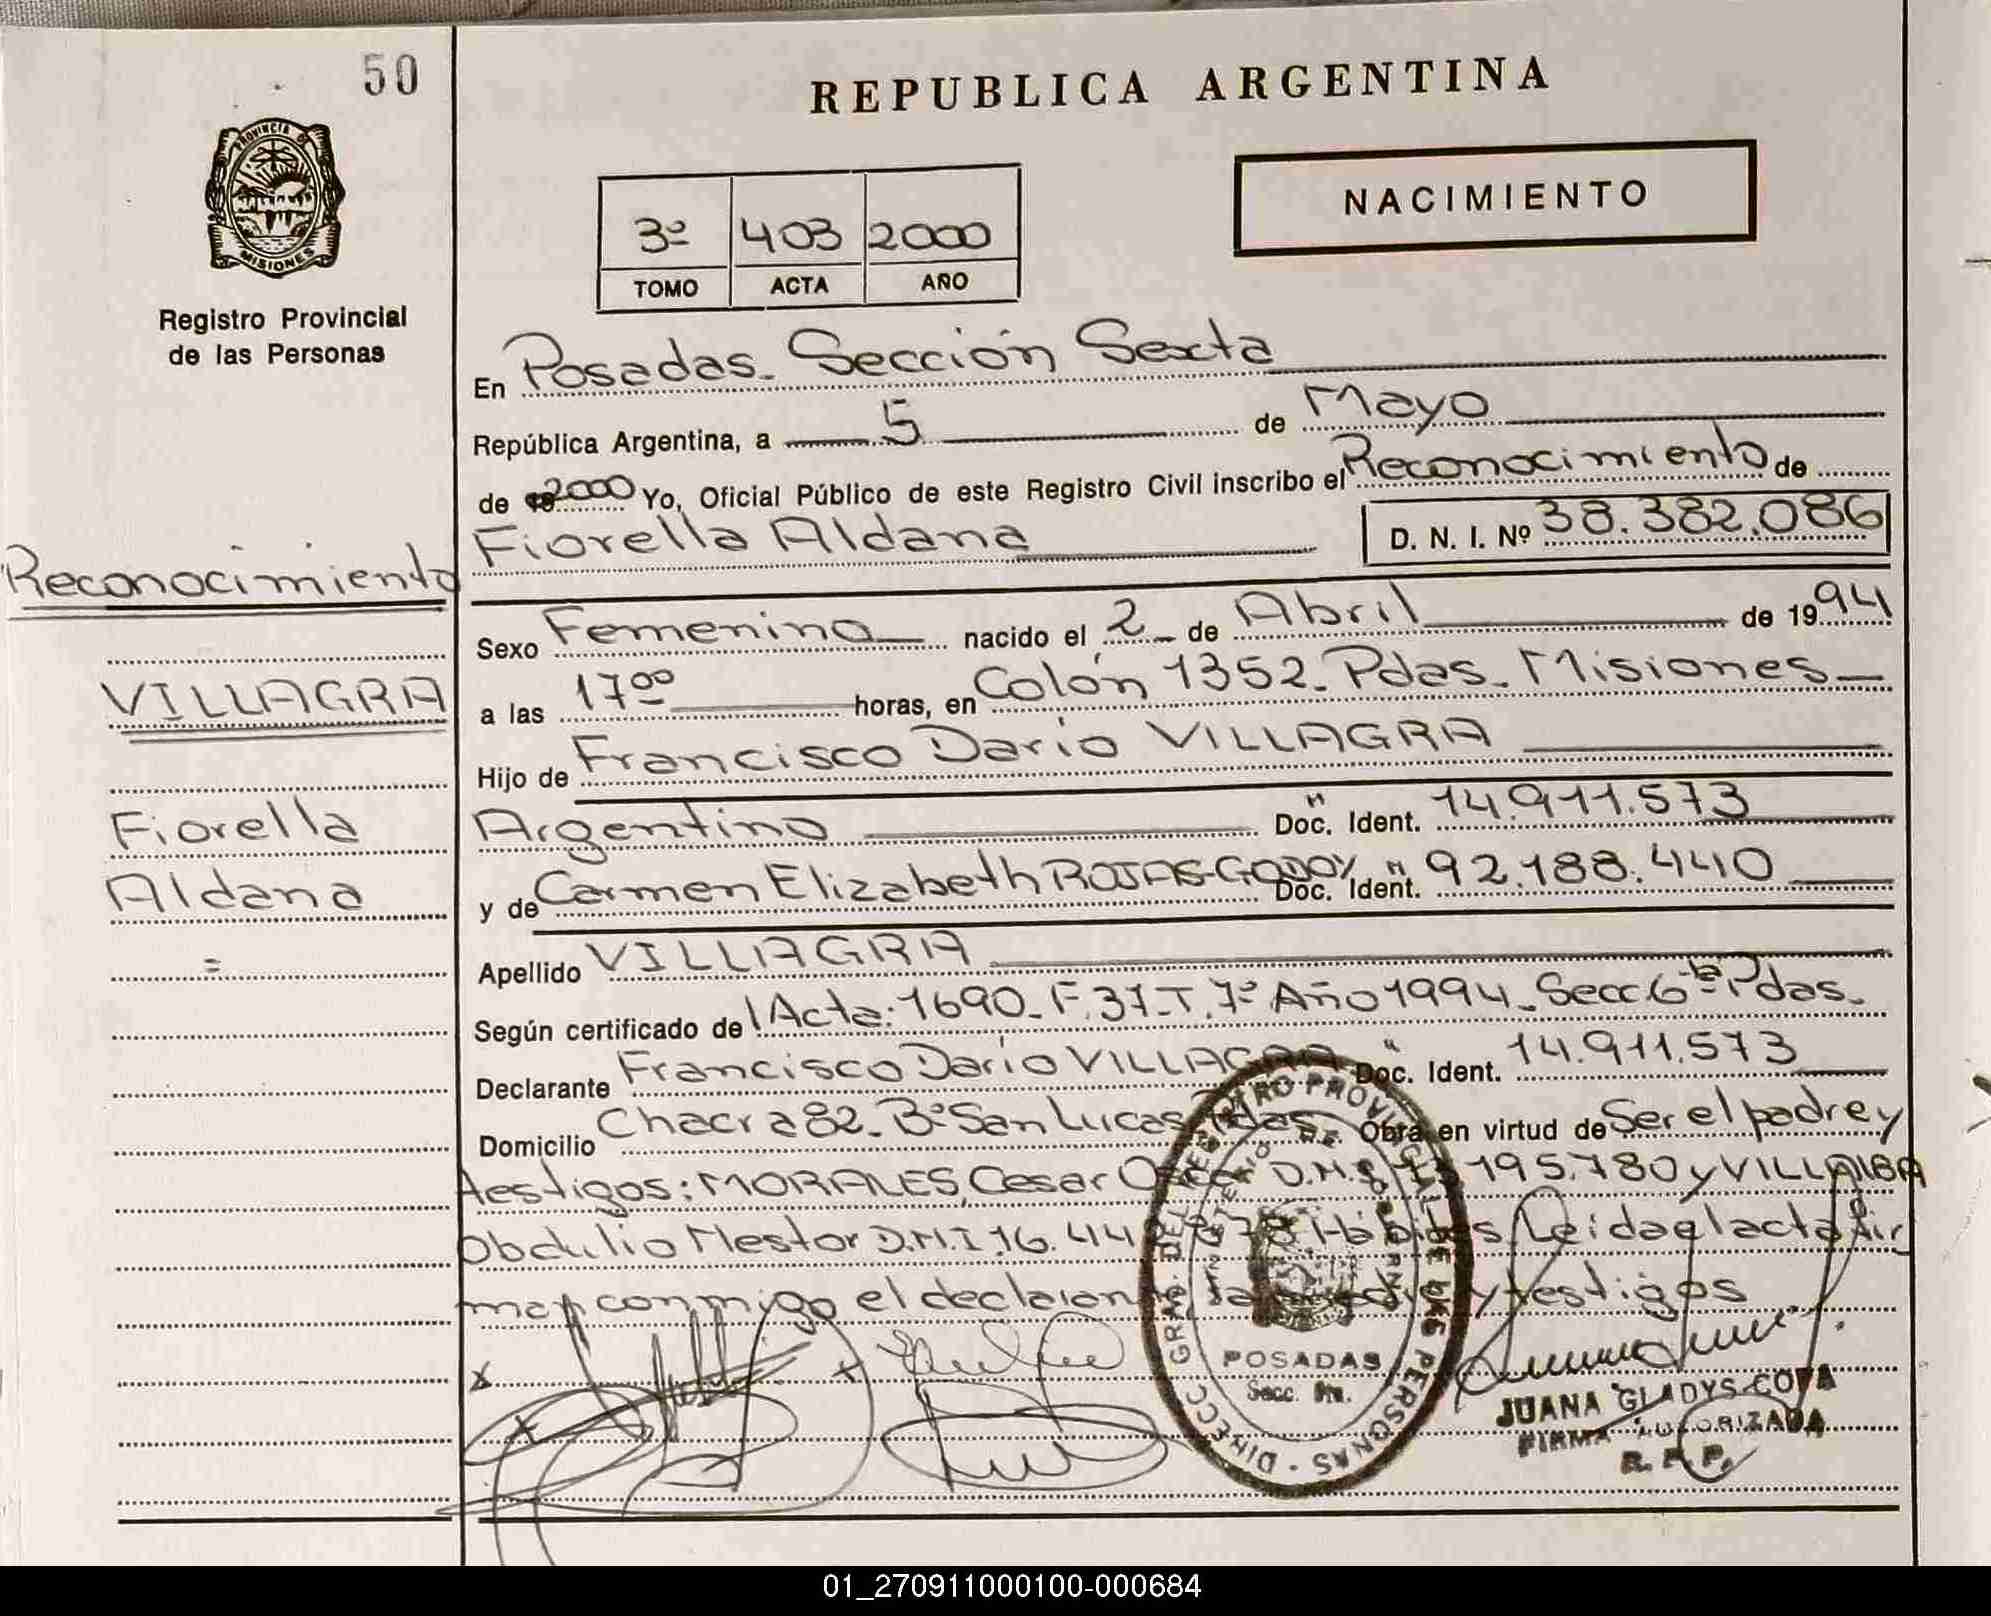 50
REPUBLICA ARGENTINA
PROVINCIA DE
MISIONES
Registro Provincial
de las Personas
3º 403 2000
TOMO ACTA AÑO
NACIMIENTO
En Posadas. Sección Sexta
República Argentina, a 5 de Mayo
de 2000 Yo, Oficial Público de este Registro Civil inscribo el Reconocimiento de
Fiorella Aldana D. N. I. Nº 38.382.086
Reconocimiento
VILLAGRA
Fiorella
Aldana
Sexo Femenino nacido el 2 de Abril de 1994
a las 17⁰⁰ horas, en Colón 1352. Pdas. Misiones
Hijo de Francisco Dario VILLAGRA
Argentino Doc. Ident. 14.911.573
y de Carmen Elizabeth ROJAS-GODOY Doc. Ident. 92.188.440
Apellido VILLAGRA
Según certificado de Acta: 1690. F. 37. T. 7º Año 1994. Secc 6ta Pdas.
Declarante Francisco Dario VILLAGRA Doc. Ident. 14.911.573
Domicilio Chacra 82. Bº San Lucas Pdas Obra en virtud de Ser el padre y
testigos: MORALES, Cesar 195.780 y VILLALBA
Obdulio Nestor D.N.I. 16.44 Hábiles Leida el acta fir
man conmigo el declarante y testigos
DIRECC. GRAL. DEL REGISTRO PROVINCIAL DE LAS PERSONAS
POSADAS
Secc.
JUANA GLADYS
FIRMA AUTORIZADA
R. P. P.
01_270911000100-000684